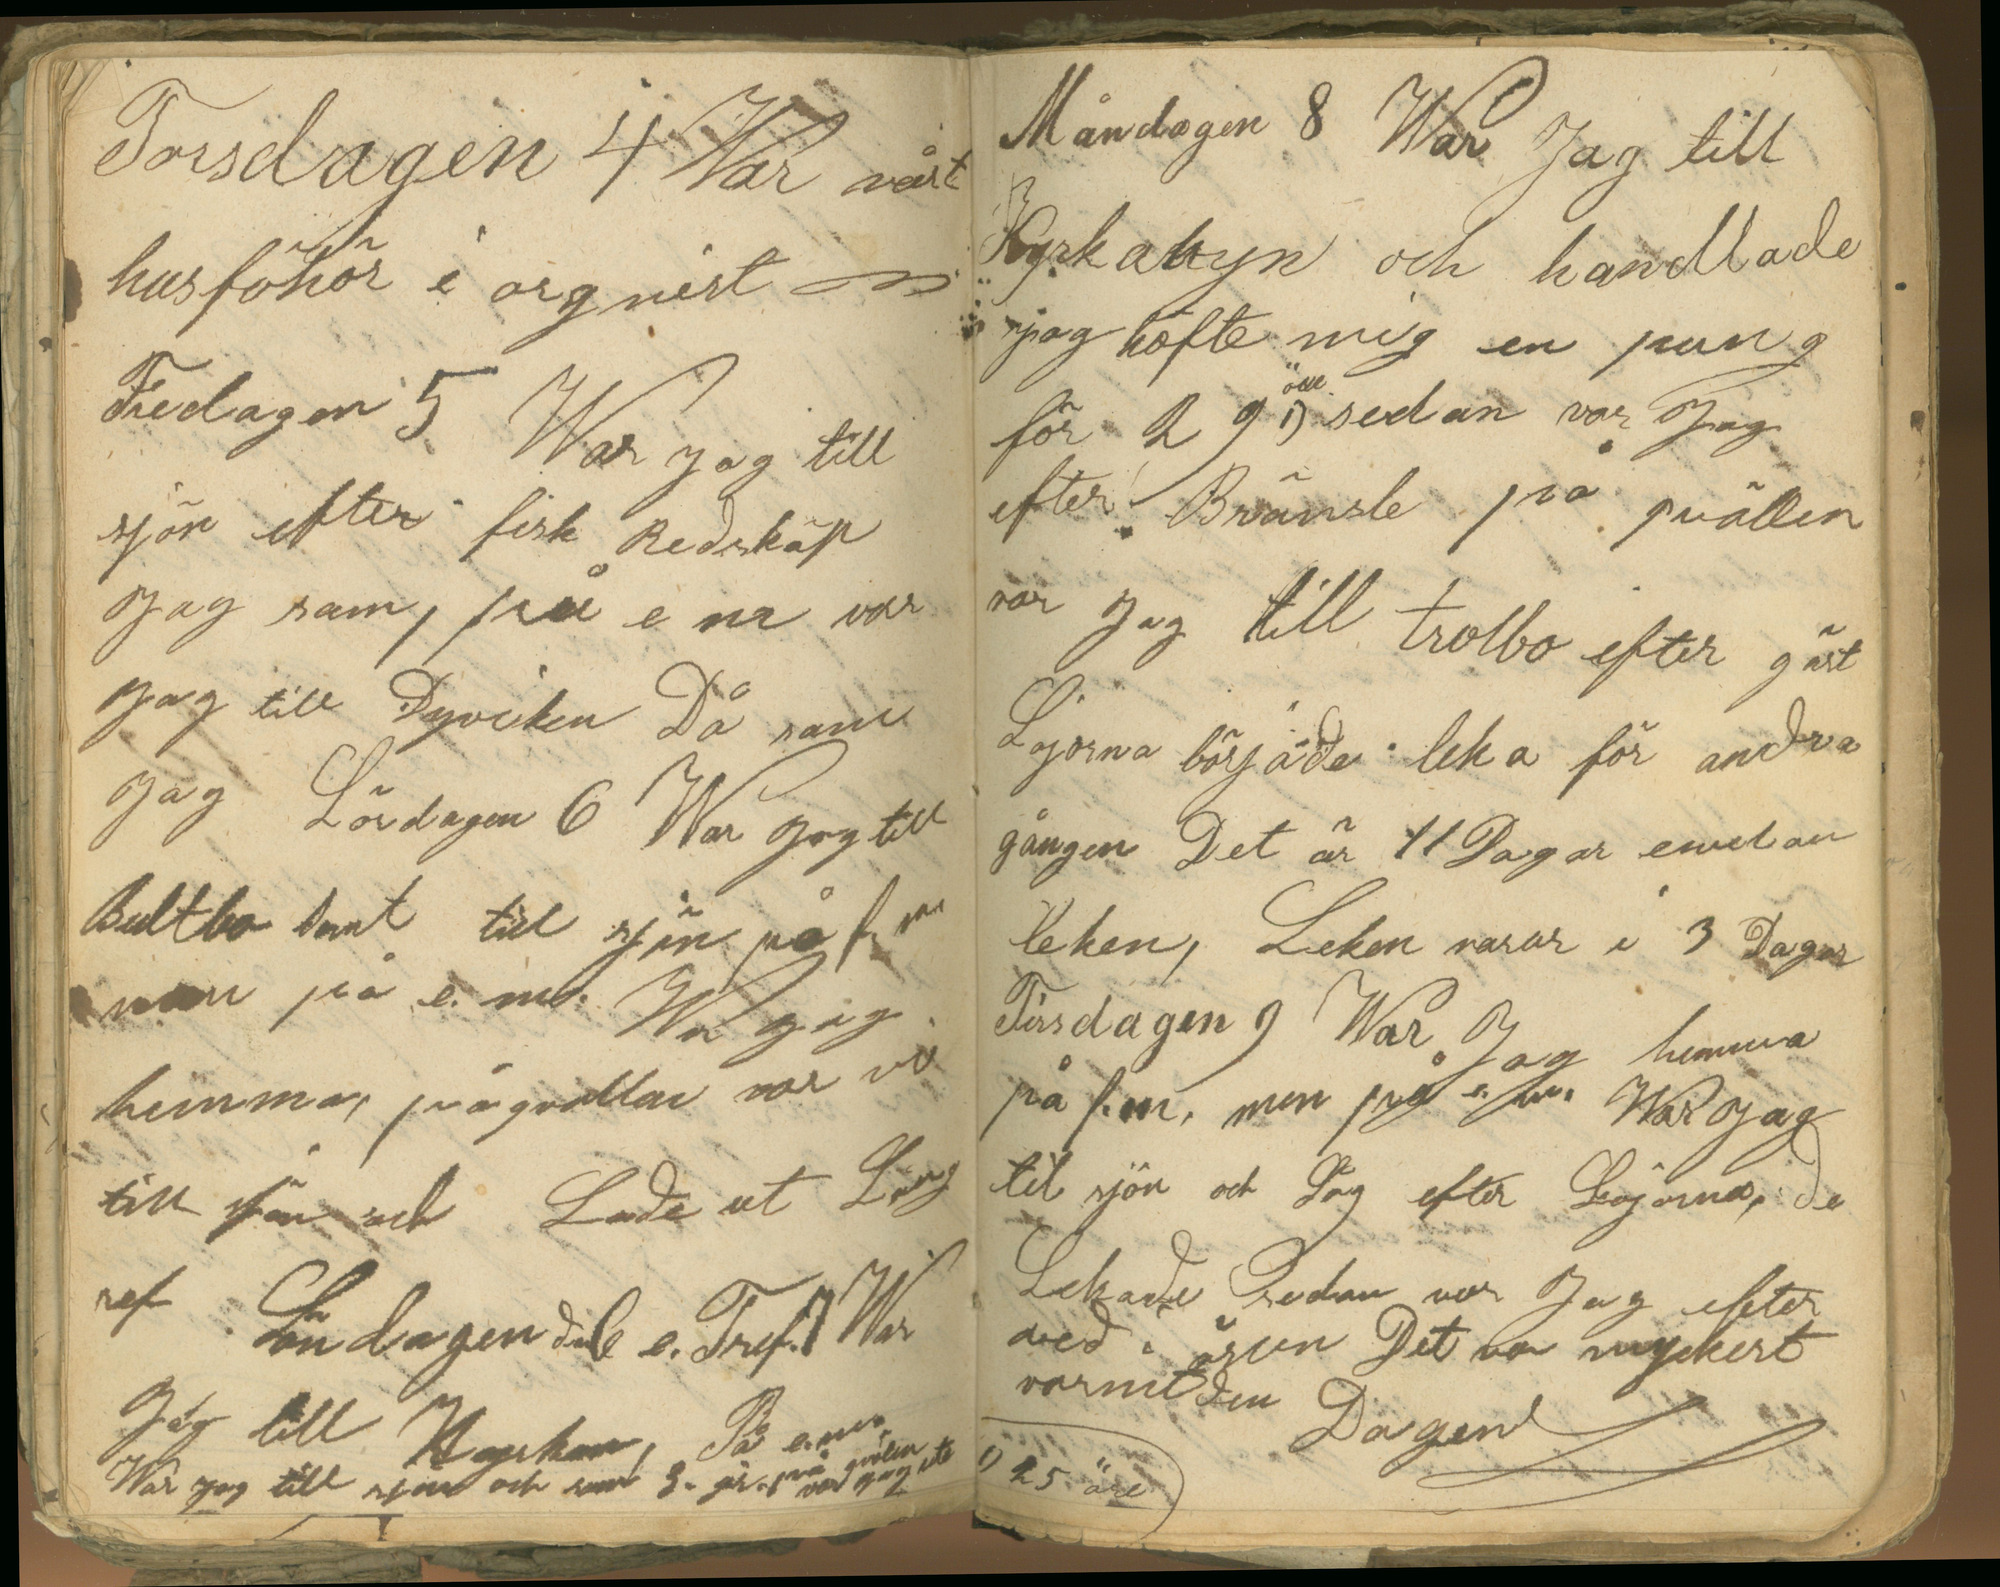 Torsdagen 4 War vårt
husföhör i orgnist
Fredagen 5 War jag till
sjön efter fisk Redskap
Jag sam, på e m var
Jag till Dyviken Då sam
Jag Lördagen 6 War Jag till
Bultbo samt till sjön på f m
men på e. m. War Jag
hemma, på qvällen var vi
till sjön och Lade ut Lång
ref Söndagen den 6 e. Tref. 7 War
Jag till Kyrkan, På e.m.
War jag till sjön och sam 3. gr. på qvälen
var jag ute
Måndagen 8 War Jag till
Kyrkabyn och handllade
jag köfte mig en pung
för 2 9 1) öre sedan var Jag
efter Bränsle på qvällen
var Jag till trolbo efter gäst
Löjorna började leka för andra
gången Det är 11 Dagar emelan
leken, Leken varar i 3 Dagar
Tisdagen 9 War Jag hemma
på f.m. men på e. m. War Jag
til sjön och Såg efter Löjorna, de
Lekade Sedan var Jag efter
ved i åsen Det va myckert
varmt den Dagen
1) 25 öre